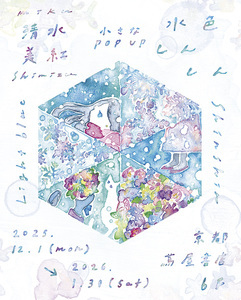 清水
美紅
shimizu
小さな
POP UP
水色
しん
しん
Shinshin
Light blue
2025.
12.1 (mon)
↓
2026.
1.31 (sat)
京都
蔦屋書店
6F